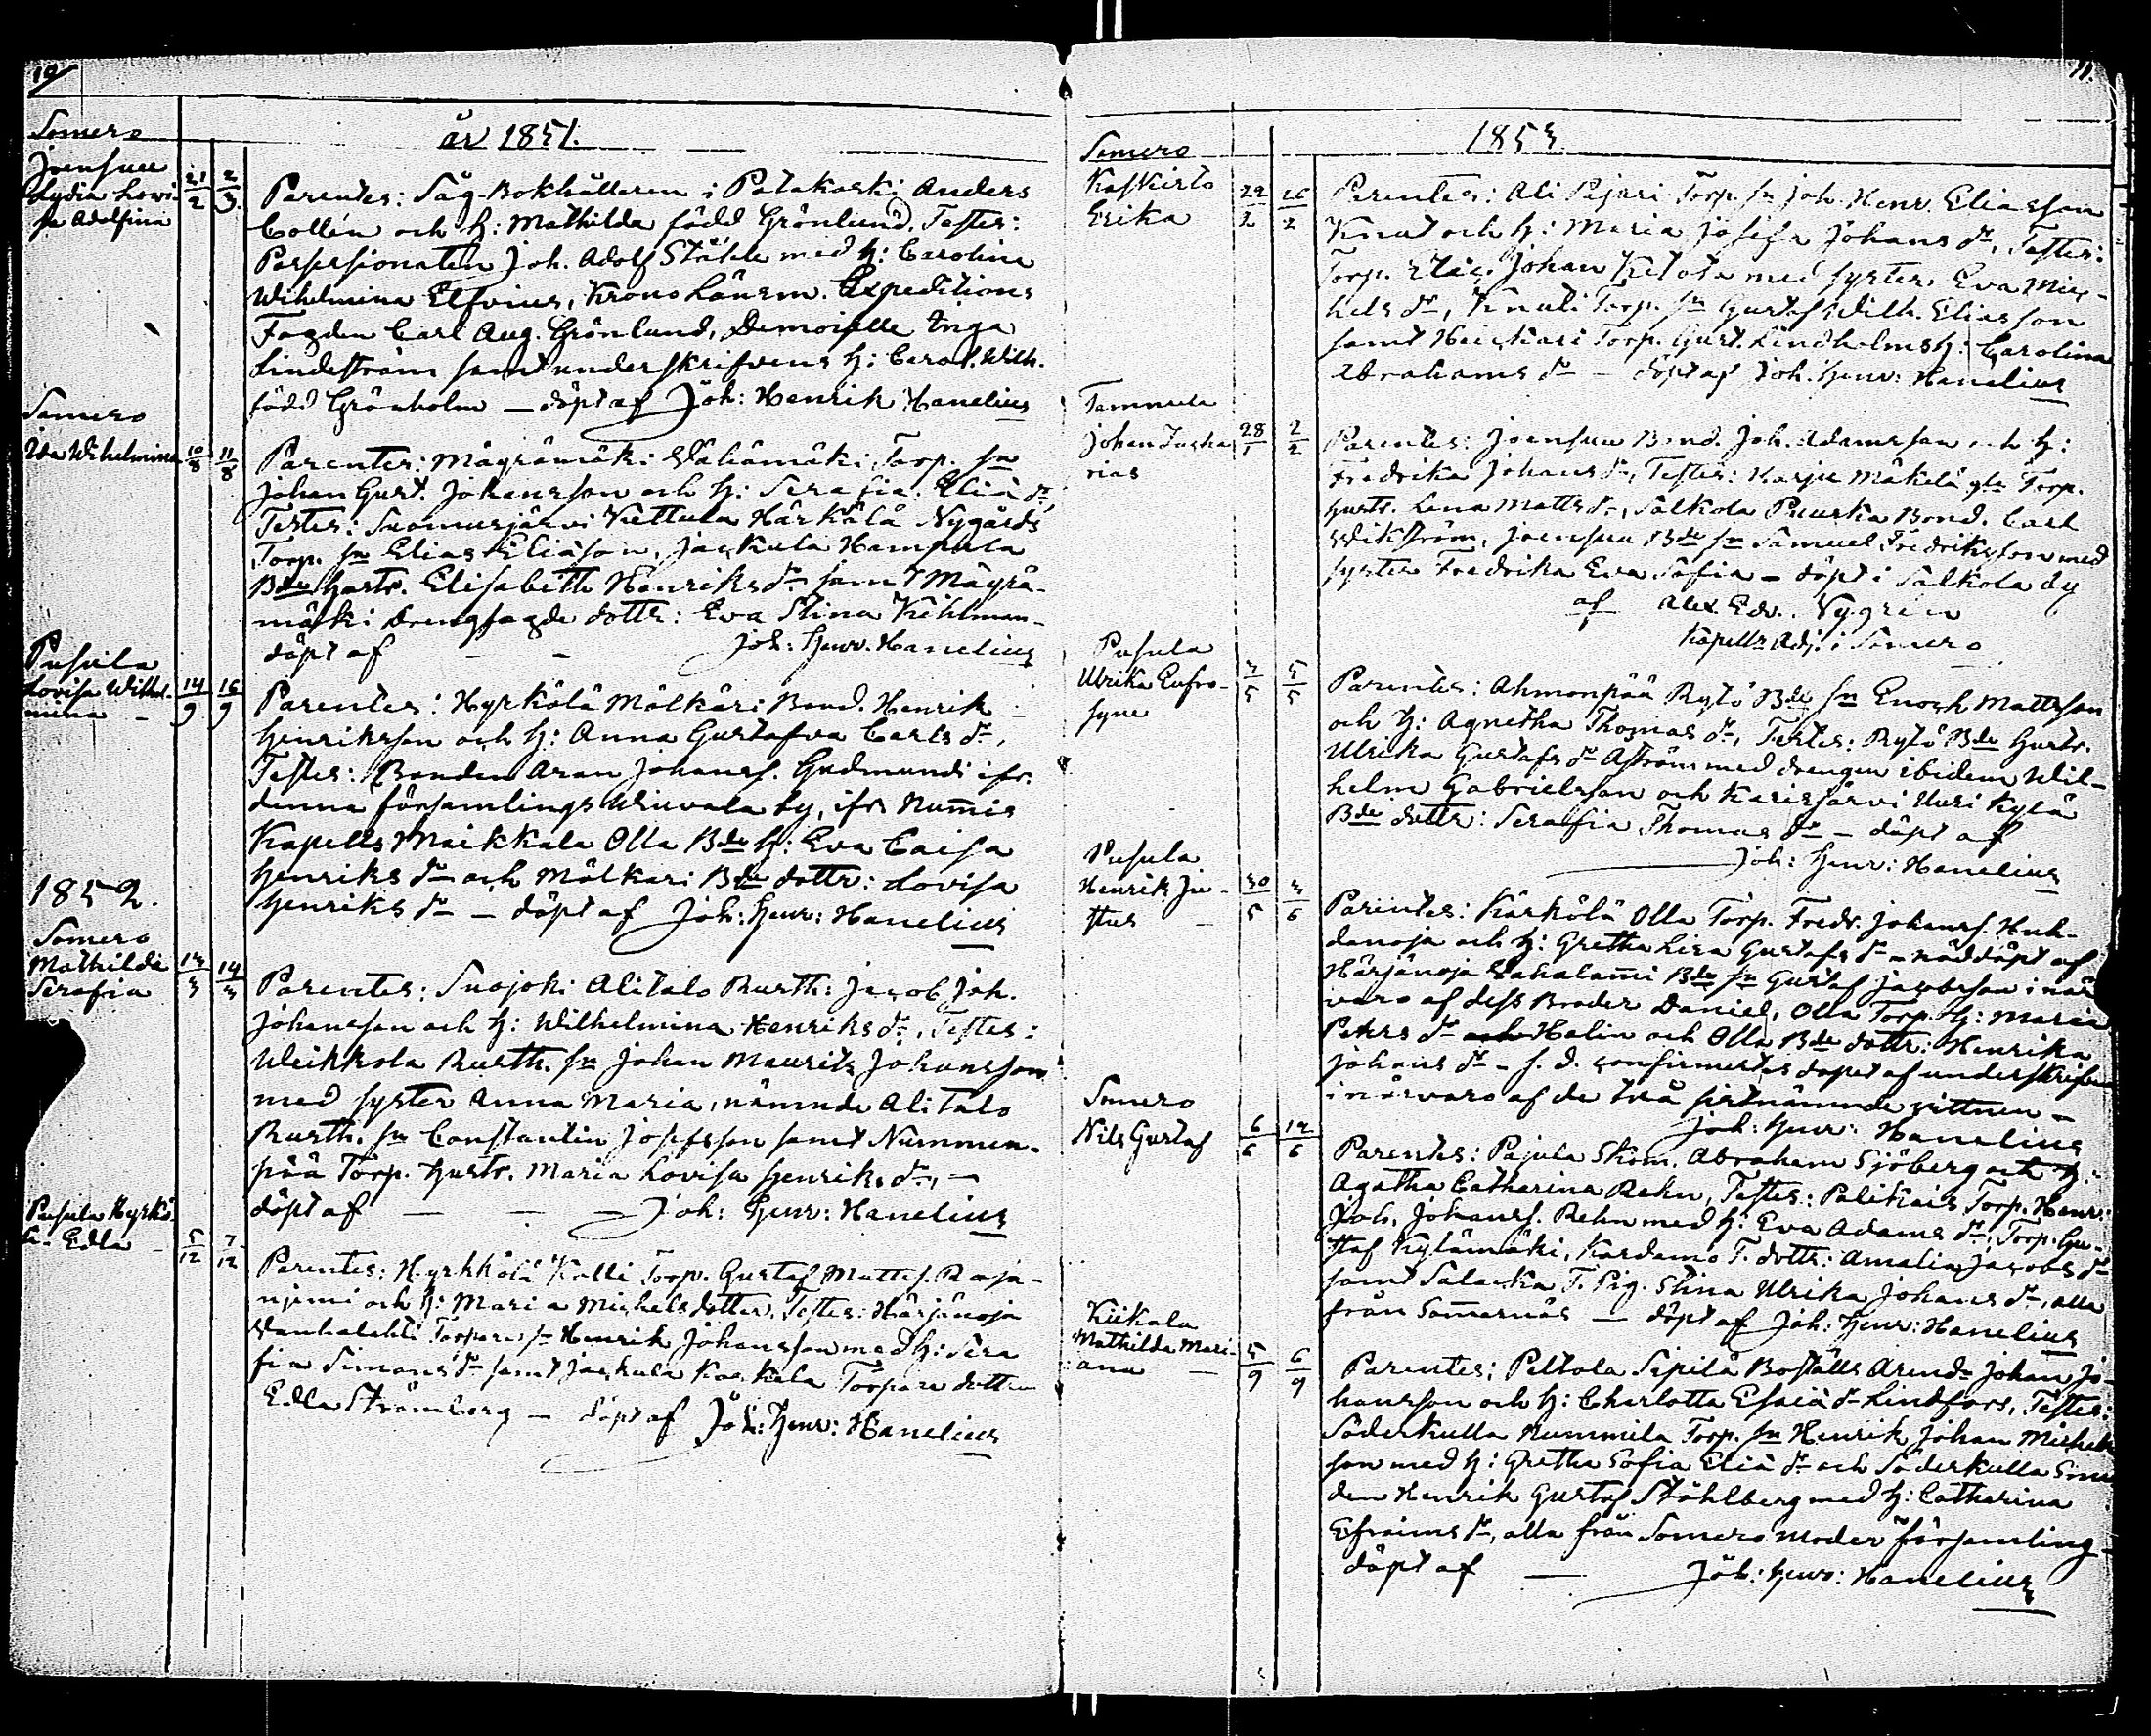 10
år 1851.
Somero
Joensuu
Lydia Lovi-
sa Adolfina
21/2 2/3
Parentes: Såg-Bokhållaren i Patakoski Anders
Collén och H: Mathilda född Grönlund. Testes:
Possessionaten Joh. Adolf Ståhle med H: Carolina
Wilhelmina Elfvius, Krono Länsm. Expeditions
Fogden Carl Aug. Grönlund, Demoiselle Inga
Lindeström samt underskrifvens H: Carol. Wilh.
född Grönholm — döpt af Joh: Henrik Hanelius
Somero
Ida Wilhelmina
10/8 11/8
Parentes: Mägrämäki Vähämäki Torp. sn
Johan Gust. Johansson och H: Serafia Eliä dr
Testes: Suomusjärvi Kettula Härkälä Nygårds
Torp. sn Elias Eliäson, Jackula Hampula
Bde hustr. Elisabeth Henriks dr samt Mägrä-
mäki Drengfogde dottr: Eva Stina Kihlman-
döpt af — — Joh: Henr. Hanelius
Pusula
Lovisa Wilhel-
mina —
14/9 16/9
Parentes: Hyrkölä Mölkäri Bond. Henrik
Henriksson och H: Anna Gustafva Carls dr,
Testes: Bonden Aran Johanss. Gudmundi ifr.
denna församlings Wiuvala by, ifr Nummis
Kapells Maikkala Olla Bde H: Eva Caisa
Henriks dr och Mölkäri Bde dottr: Lovisa
Henriks dr — döpt af Joh: Henr: Hanelius
1852.
Somero
Mathilda
Serafia
13/3 14/3
Parentes: Suojoki Alitalo Rusth: Jacob Joh.
Johansson och H: Wilhelmina Henriks dr, Testes:
Weikkola Rusth. sn Johan Maurits Johansson
med syster Anna Maria, nämnde Alitalo
Rusth. sn Constantin Josefsson samt Nummen-
pää Torp. hustr. Maria Lovisa Henriks dr, —
döpt af — — — Joh: Henr: Hanelius
Pusula Hyrkö-
lä- Edla —
5/12 7/12
Parentes: Hyrkkölä Kalli Torp. Gustaf Matts.
niemi och H: Maria Michelsdotter, Testes: Härjänoja
Torpare sn Henrik Johansson med H: Sera
fia Simons dr samt Jackula Torpare dottren
Edla Strömberg — döpt af Joh: Henr: Hanelius
11.
1853
Somero
Kaskisto
Erika
22/2 26/2
Parentes: Ali Pajari Torp. sn Joh. Henr. Eliasson
Knut och H: Maria Josefa Johans dr, Testes:
Torp. Johan Ketola med syster Eva Mic-
hels dr, Knuti Torp. sn Gustaf Wilh. Eliasson
samt Heikkari Torp. Gust. Lindholms H: Carolina
Abrahams dr — döpt af Joh. Henr: Hanelius
Tammula
Johan Zacha
rias
28/1 2/2
Parentes: Joensuu Bond. Joh. Adamsson och H:
Fredrika Johans dr, Testes: Karju Mäkelä gla Torp.
hustr. Lena Matts dr, Salkola Puurka Bond. Carl
Wikström, Joensuu Bde sn Samuel Fredriksson med
syster Fredrika Eva Sofia — döpt i Salkola by
af Alex. Edv. Nygrén
Kapells Adj: i Somero
Pusula
Ulrika Eufro-
syne
3/5 5/5
Parentes: Ahmonpää Rytö Bde sn Enoch Mattsson
och H: Agnetha Thomas dr, Testes: Rytö Bde hustr.
Ulrika Gustafs dr Aström med drengen ibidem Wil-
helm Gabrielsson och Karisjärvi Uusi Kylä
Bde dottr: Serafia Thomas dr — döpt af
Joh: Henr: Hanelius
Pusula
Henrik Ju-
stus —
30/5 3/6
Parentes: Kärkölä Olla Torp. Fredr. Johanss. Huh-
danoja och H: Gretha Lisa Gustafs dr — näddöpt af
Härjänoja Bde sn Gustaf Jacobsson i när
varo af dess Broder Daniel, Olla Torp. H: Maria
Peters dr och Helin och Olla Bde dottr: Henrika
Johans dr — s. d. confirmertes döpet af underskrifven
i närvaro af de två sistnämnde vittnen —
Joh: Henr: Hanelius
Somero
Nils Gustaf
6/6 12/6
Parentes: Pajula Skom. Abraham Sjöberg och H:
Agatha Catharina Rehn, Testes: Palikais Torp. Henr:
Joh. Johanss. Rehn med H: Eva Adams dr, Torp. Gu-
staf Kylämäki, Kardamo T. dottr: Amalia Jacobs dr
samt Salacka T. Pig. Stina Ulrika Johans dr, alla
från Somernäs — döpt af Joh: Henr: Hanelius
Kiikala
Mathilda Mari-
ana —
5/9 6/9
Parentes: Peltola Sipilä Boställs Arend. Johan Jo-
hansson och H: Charlotta Esaiä dr Lindfors, Testes:
Söderkulla Nummila Torp. sn Henrik Johan Michels
son med H: Gretha Sofia Eliä dr och Söderkulla Sme
den Henrik Gustaf Ståhlberg med H: Catharina
Efraims dr, alla från Somero Moder församling —
döpt af — Joh: Henr: Hanelius